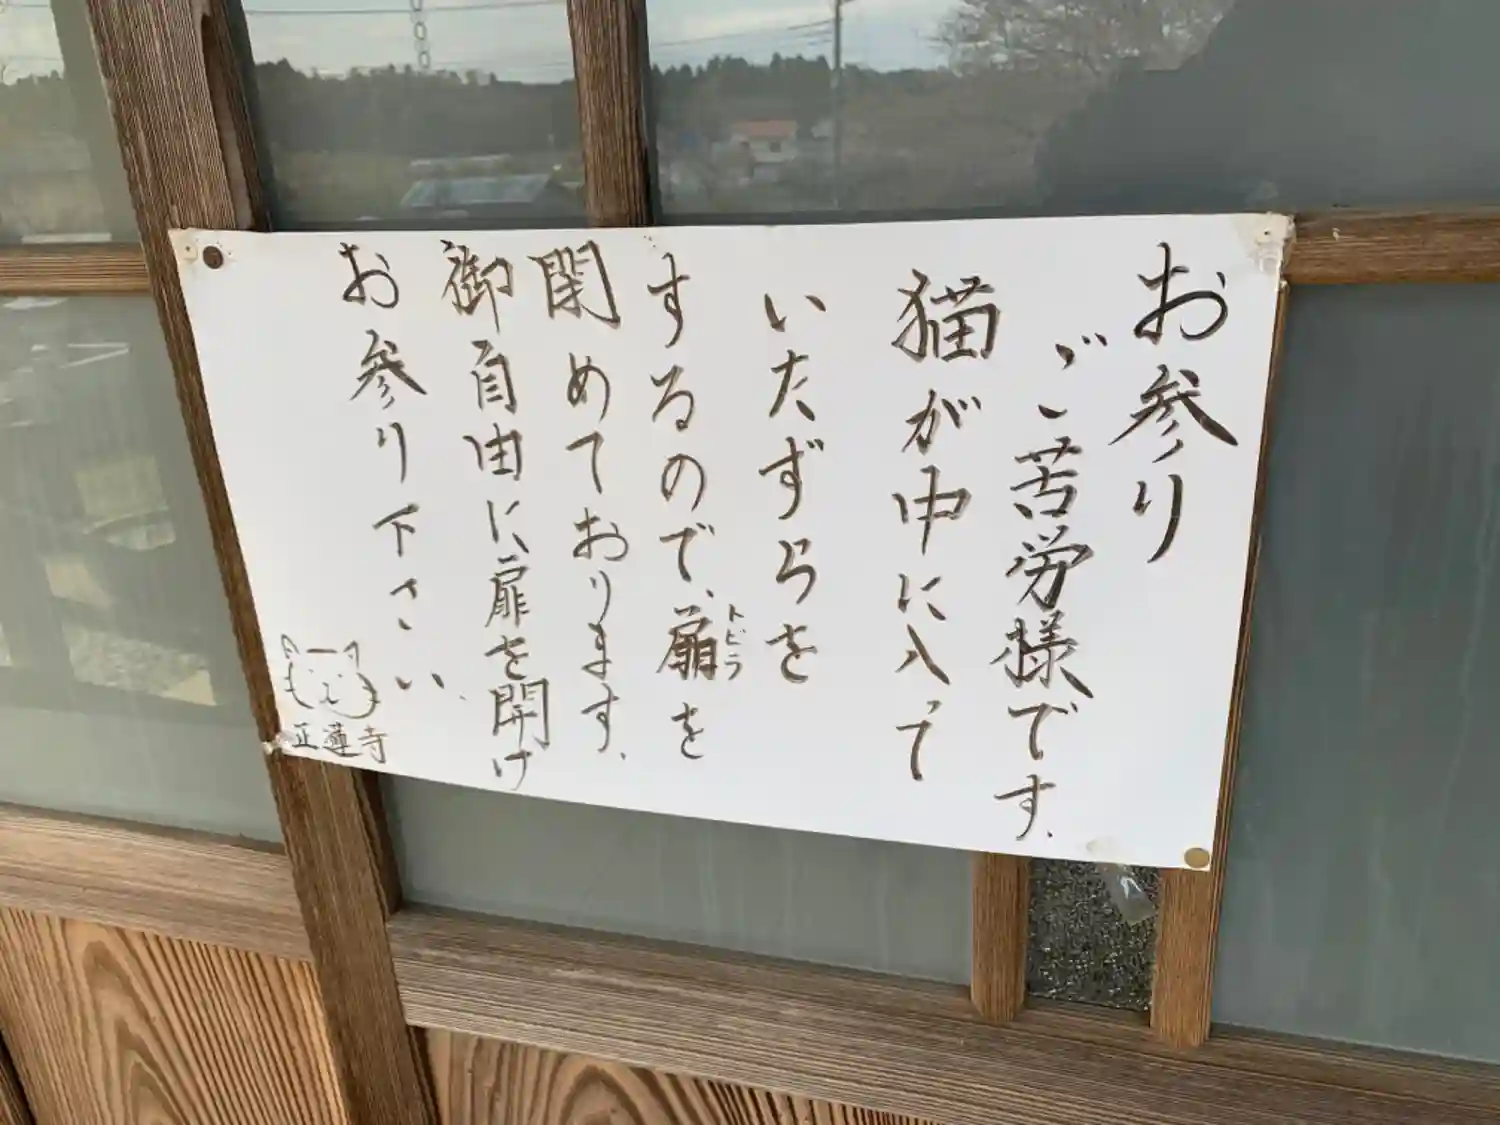 お参り
ご苦労様です.
猫が中に入って
いたずらを
するので、扉を
トビラ
閉めております.
御自由に、扉を開け
お参り下さい.
正蓮寺